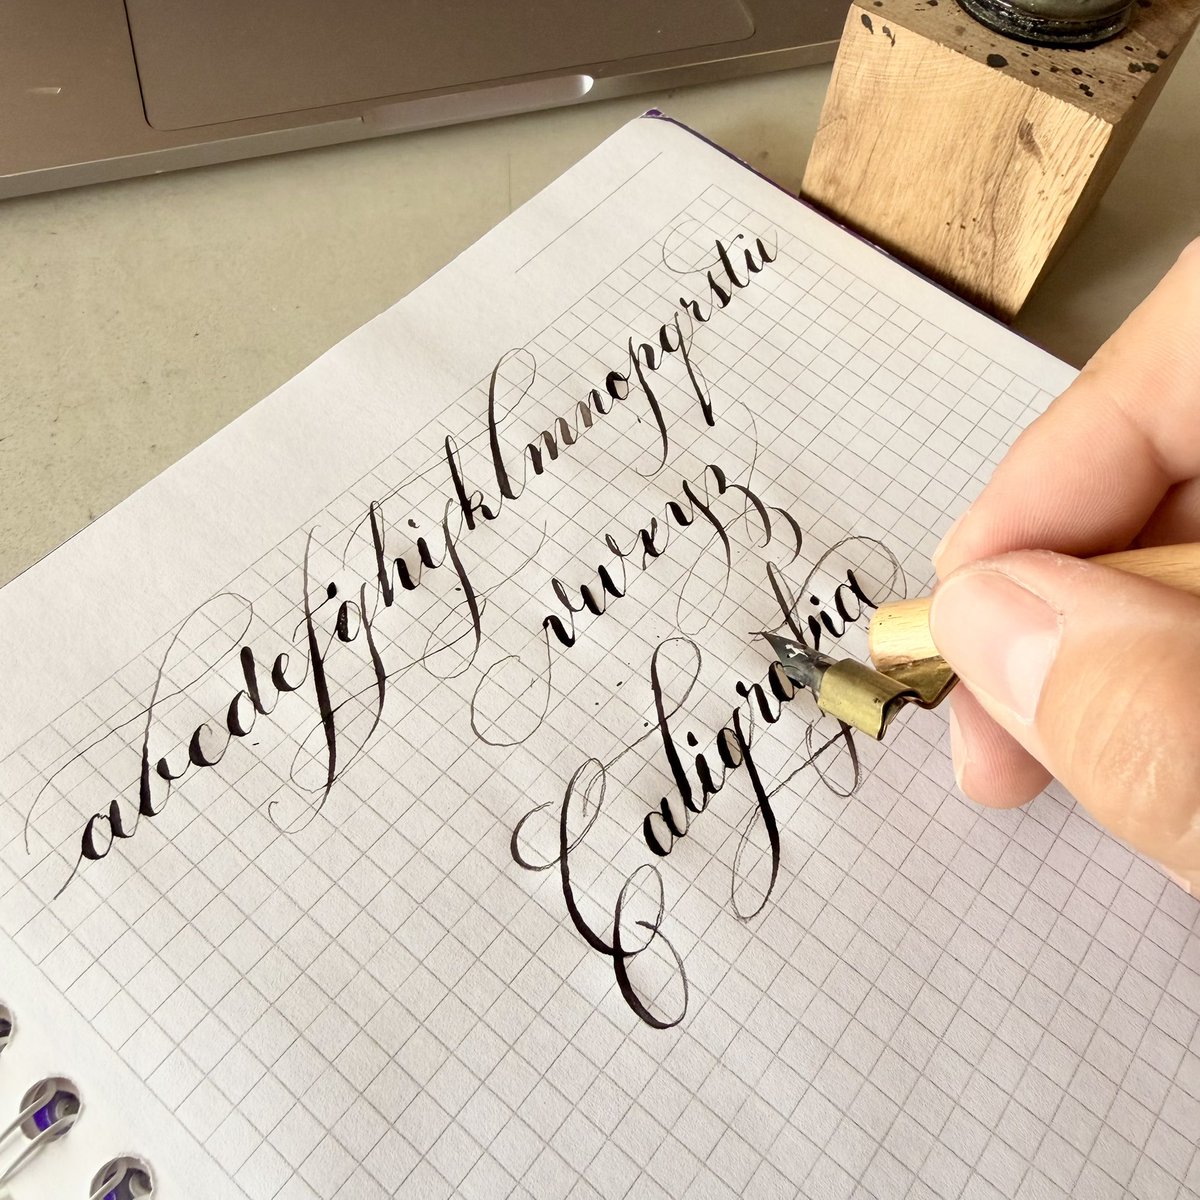 abcdefghijklmnopqrstu
vwxyz
Caligrafia